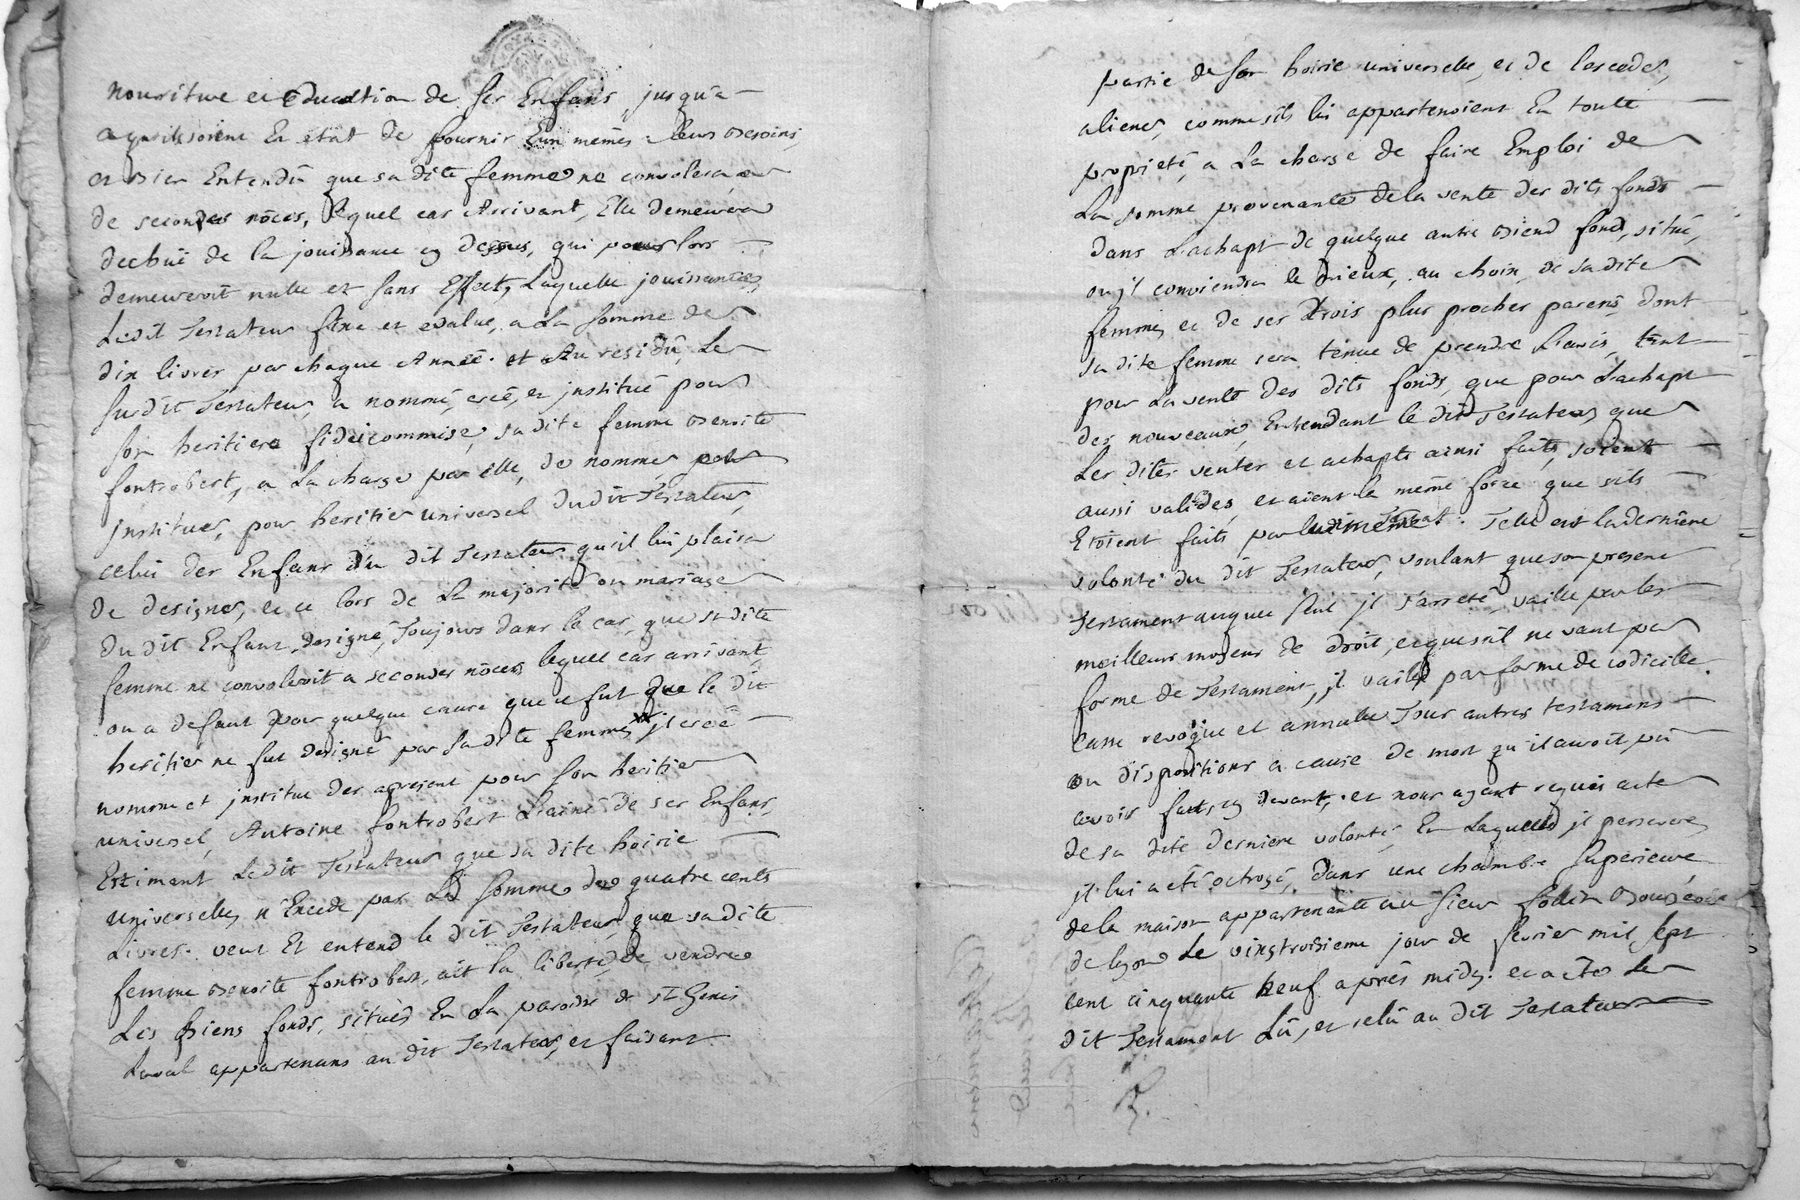 nouriture et education de ses Enfans, jusqu'a
aquilssoient En etat de fournir Eux mêmes a leurs besoins,
et bien Entendû que sa dite femme ne convolera
de secondes nôces, lequel cas Arrivant, Elle demeurera
dechuë de la jouissance cy dessus, qui pour lors
demeureroit nulle et sans Effect, Laquelle jouissance,
Ledit Testateur fixe et evalue, a La somme de
dix livres par chaque Année. et Au residû, Le
susdit Testateur, a nommé, creé, et institué pour
son heritiere fideicommise, sa dite femme benoite
fontrobert, a La charge par elle, de nommer, et
instituer, pour heritier universel dudit Testateur,
celui des Enfans du dit Testateur qu'il lui plaira
de designer, et ce lors de La majorité ou mariage
du dit Enfant designé, Toujours dans le cas, que sa dite
femme ne convoleroit a secondes nôces, lequel cas arrivant
ou a defaut pour quelque cause que ce fut que le dit
heritier ne fut designé par sa dite femme, il creé
nomme et institue des apresent pour son heritier
universel, Antoine fontrobert L'ainé de ses Enfans,
Estimant Ledit Testateur que sa dite hoirie
universelle, n'Excede pas La somme de quatre cents
Livres. veut Et entend le dit Testateur, que sa dite
femme benoite fontrobert, ait la liberté de vendre
Les biens fonds, situés En La paroisse de st Genis
Laval appartenans au dit Testateur, et faisant
partie de son hoirie universelle, et de les ceder,
aliener, comme s'ils lui appartenoient En toute
proprieté, a La charge de faire Emploi de
La somme provenante de la vente des dits fonds
dans L'achapt de quelque autre biend fond, situé,
ou j'l conviendra le mieux, au choix, de sa dite
femme, et de ses trois plus proches parens, dont
sa dite femme sera tenue de prendre L'avis, tant
pour La vente des dits fonds, que pour L'achapt
des nouveaux, Entendant le dit Testateur, que
Les dites ventes et achapts ainsi faits, soient
aussi valides, et aient la même force que s'ils
Etoient faits par Testat. Telle est la derniere
volonté du dit Testateur, voulant que son present
Testament auquel seul jl s'arrete, vaille par les
meilleurs moyens de droit, et que s'il ne vaut par
forme de Testament, jl vaille par forme de codicille.
Casse revoque et annulle Tous autres testamens
ou dispositions a cause de mort qu'il auroit pû
avoir faits, cy devant, et nous ayant requis acte
de sa dite derniere volonté, En Laquelle jl persevere,
jl lui a été octroyé, dans une chambre superieure
de la maison appartenante au sieur
de lyon Le vingtroisieme jour de fevrier mil sept
cent cinquante neuf après midy. et a été Le
dit Testament Lû, et relû au dit Testateur